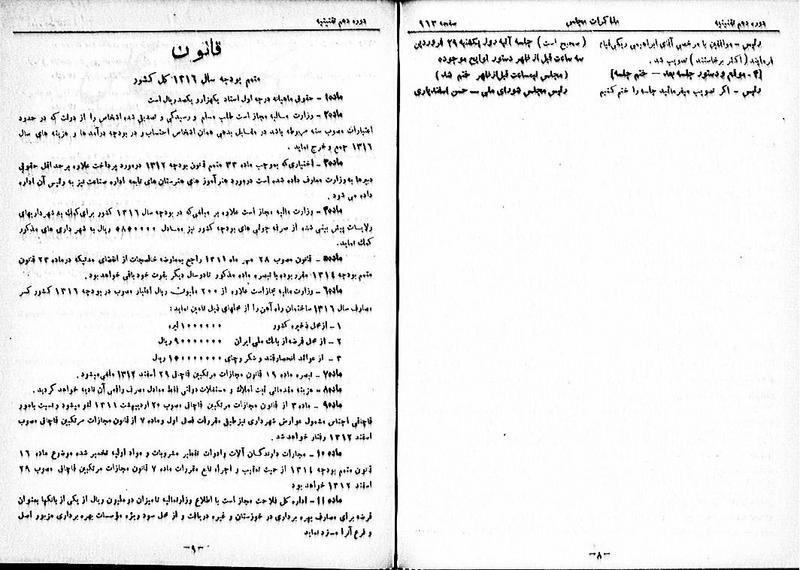 دوره دهم تقنینیه
مذاکرات مجلس
صفحه ۹۶۳
رئیس - موافقین با مرخصی آقای ابراهیمی ریگی قیام
فرمایند (اکثر برخاستند) تصویب شد.
[۴- موقع و دستور جلسه بعد - ختم جلسه]
رئیس - اگر تصویب میفرمائید جلسه را ختم کنیم
(صحیح است) جلسه آتیه روز یکشنبه ۲۹ فروردین
سه ساعت قبل از ظهر دستور لوایح موجوده
(مجلس نیمساعت قبل از ظهر ختم شد)
رئیس مجلس شورای ملی - حسن اسفندیاری
-۸-
دوره دهم تقنینیه
قانون
متمم بودجه سال ۱۳۱۶ کل کشور
ماده ۱ - حقوق ماهیانه درجه اول استاد یکهزار و یکصد ریال است
ماده ۲ - وزارت مالیه مجاز است طلب مسلم و رسیدگی و تصدیق شده اشخاص را از دولت که در حدود
اعتبارات مصوب سنه مربوطه باشد در مقابل بدهی همان اشخاص احتساب و در بودجه درآمدها و هزینه های سال
۱۳۱۶ جمع و خرج نماید.
ماده ۳ - اختیاری که بموجب ماده ۳۳ متمم قانون بودجه ۱۳۱۲ در مورد پرداخت علاوه بر حد اقل حقوق
دبیرها به وزارت معارف داده شده است در مورد هنرآموز های هنرستان های تابعه اداره صناعت نیز به رئیس آن اداره
داده می شود.
ماده ۴ - وزارت مالیه مجاز است علاوه بر مبلغی که در بودجه سال ۱۳۱۶ کشور برای کمک به شهرداریهای
ولایات پیش بینی شده از صرفه جوئی های بودجه کشور نیز معادل ۵۸۵۰۰۰۰ ریال به شهرداری های مذکور
کمک نماید.
ماده ۵ - قانون مصوب ۲۸ مهر ماه ۱۳۱۱ راجع بمعاوضه خالصجات از اقتضای مدتیکه در ماده ۲۳ قانون
متمم بودجه ۱۳۱۴ مقرر بوده با تبصره ماده مذکور تا دو سال دیگر بقوت خود باقی خواهد بود.
ماده ۶ - وزارت مالیه مجاز است علاوه از ۲۰۰ ملیون ریال اعتبار مصوب در بودجه ۱۳۱۶ کشور کسر
مصارف سال ۱۳۱۶ ساختمان راه آهن را از محلهای ذیل تامین نماید:
۱ - از محل ذخیره کشور ۱۰۰۰۰۰۰ لیره
۲ - از محل قرضه از بانک ملی ایران ۹۰۰۰۰۰۰۰ ریال
۳ - از عوائد انحصار قند و شکر و چای ۱۵۰۰۰۰۰۰۰ ریال
ماده ۷ - تبصره ماده ۱۹ قانون مجازات مرتکبین قاچاق ۲۹ اسفند ۱۳۱۲ ملغی میشود.
ماده ۸ - هزینه مقدماتی ثبت املاک و مستغلات دولتی فقط معادل مصرف واقعی آن تادیه خواهد گردید.
ماده ۹ - ماده ۳ از قانون مجازات مرتکبین قاچاق مصوب ۲۰ اردیبهشت ۱۳۱۱ لغو میشود و نسبت بامور
قاچاقی اجناس مشمول عوارض شهرداری نیز طبق مقررات فصل اول و ماده ۷ از قانون مجازات مرتکبین قاچاق مصوب
اسفند ۱۳۱۲ رفتار خواهد شد.
ماده ۱۰ - مجازات دارندگان آلات و ادوات تقطیر مشروبات و مواد اولیه تخمیر شده موضوع ماده ۱۶
قانون متمم بودجه ۱۳۱۴ از حیث تعقیب و اجراء تابع مقررات ماده ۷ قانون مجازات مرتکبین قاچاق مصوب ۲۹
اسفند ۱۳۱۲ خواهد بود
ماده ۱۱ - اداره کل فلاحت مجاز است با اطلاع وزارت مالیه تا میزان دو ملیون ریال از یکی از بانکها بعنوان
قرضه برای مصارف بهره برداری در خوزستان و غیره دریافت و از محل سود ویژه مؤسسات بهره برداری مزبور اصل
و فرع آنرا مسترد نماید
-۹-